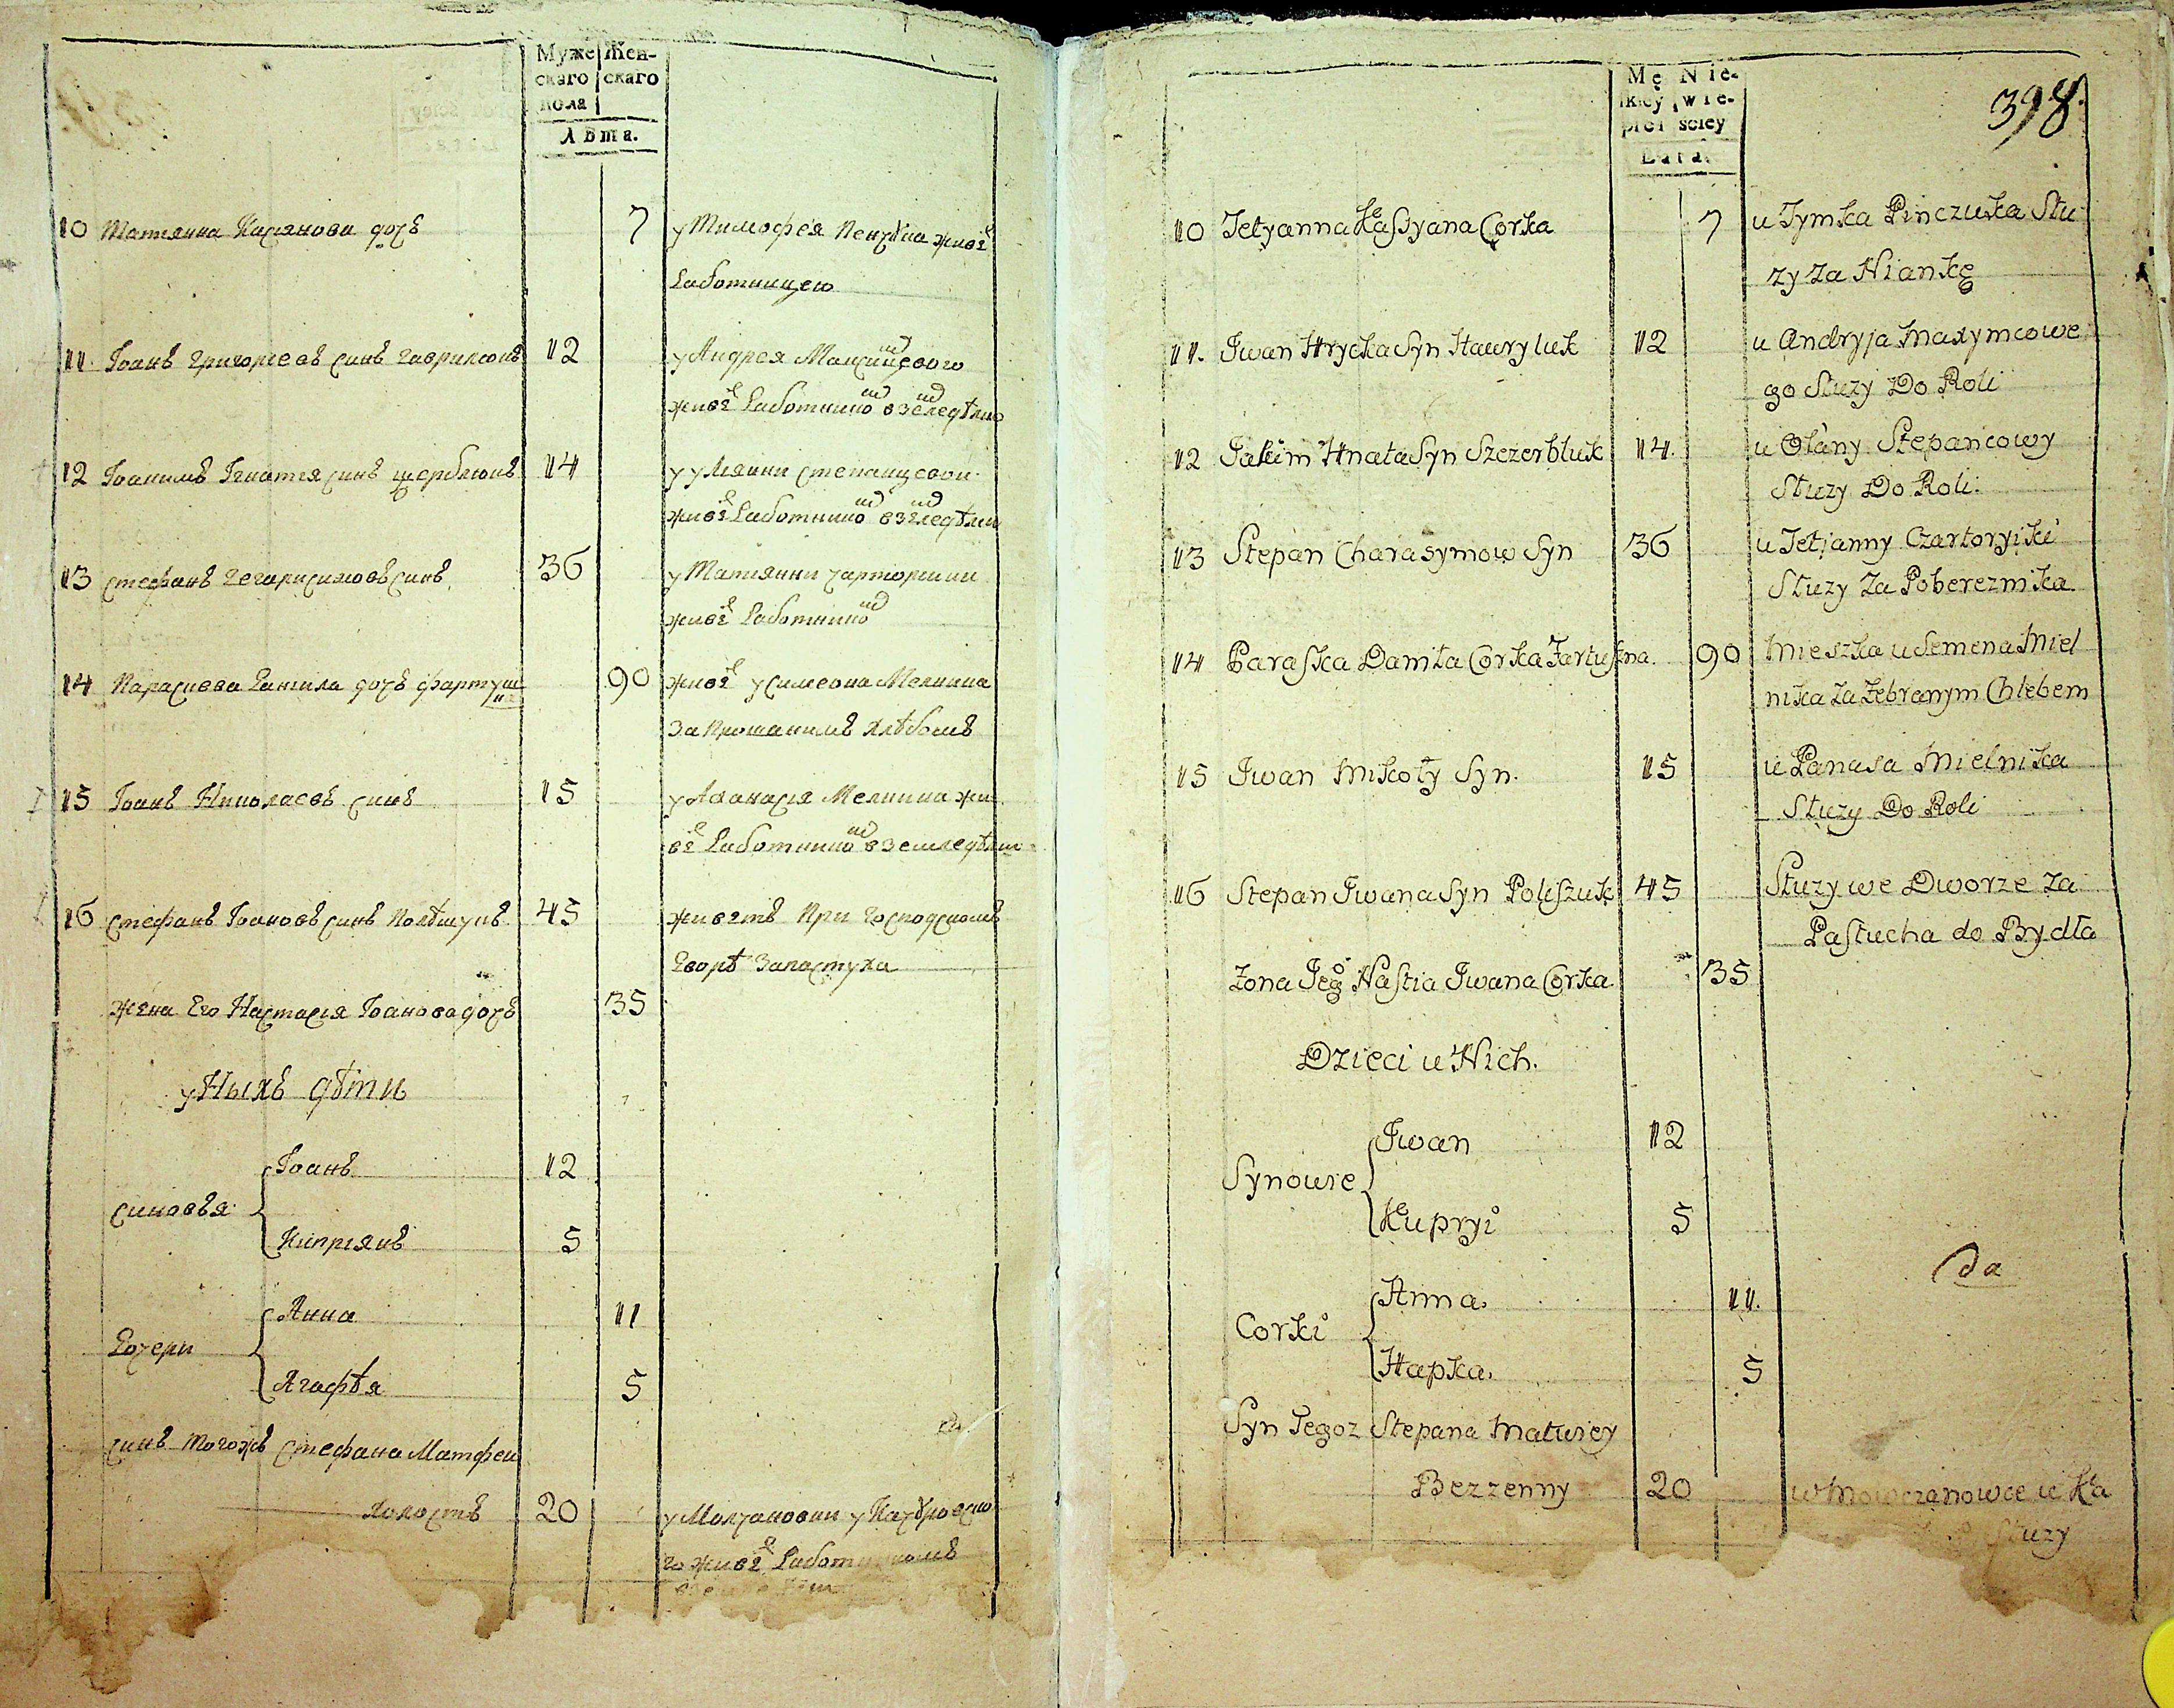 Муже Жен-
скаго скаго
пола
Лѣта.
10 Татиянна Касиянова дочь 7 у Тимофея Пенчука живе
Работницею
11. Іоанъ Григориевъ синъ Гаврилюкъ 12 у Андрея Максимцевого
живе Работникомъ в земледѣлію
12 Іоакимъ Игнатія синъ щерблюкъ 14 у Улянни степанцевои
живе Работникомъ в земледѣлии
13 стефанъ Гегарисимовъ синъ 36 у Татиянни чарторийки
живе Работникомъ
14 Параскева Данила дочъ фартуш 90 живе у Симеона Мелника
на
За Прошанимъ хлѣбомъ
15 Іоанъ Николаевъ синъ 15 у Афанасія Мелника жи
ве Работникомъ в земледѣлии
16 стефанъ Іоановъ синъ Полѣщукъ 45 живетъ При Господскомъ
Дворѣ За пастуха
жена Его Настасія Іоанова дочъ 35
у Ныхъ дѣти
Іоанъ 12
синовья
Кипріянъ 5
Анна 11
Дочери
Агафѣя 5
синъ того жъ Стефана Матфеи
холостъ 20 у Молчановки у
го живе Работникомъ
398.
Mę Nie-
skiey wie-
płci sciey
Lata.
10 Tetyanna Kastyana Corka 7 u Tymka Pinczuka Słu
zy za Niankę
11. Iwan Hrycka Syn Hawryluk 12 u Andryja Maxymcowe
go Słuzy Do Roli
12 Jakim Hnata Syn Szczerbluk 14. u Olany Stepancowy
Słuzy Do Roli.
13 Stepan Charasymow Syn 36 u Tetjanny Czartoryiki
Słuzy za Pobereznika
14 Paraska Daniła Corka Fartuszna. 90 Mieszka u Semena Miel
nika za zebranym Chlebem
15 Iwan Mikoły Syn. 15 u Panasa Mielnika
Słuzy Do Roli
16 Stepan Iwana Syn Poliszuk 45 Słuzy we Dworze za
Pastucha do Bydła
Zona Jego Nastia Iwana Corka 35
Dzieci u Nich.
Iwan 12
Synowie
Kupryi 5
da
Anna. 11.
Corki
Hapka. 5
Syn Tegoz Stepana Matwiey
Bezzenny 20 w Mowczanowce u Ka
Słuzy